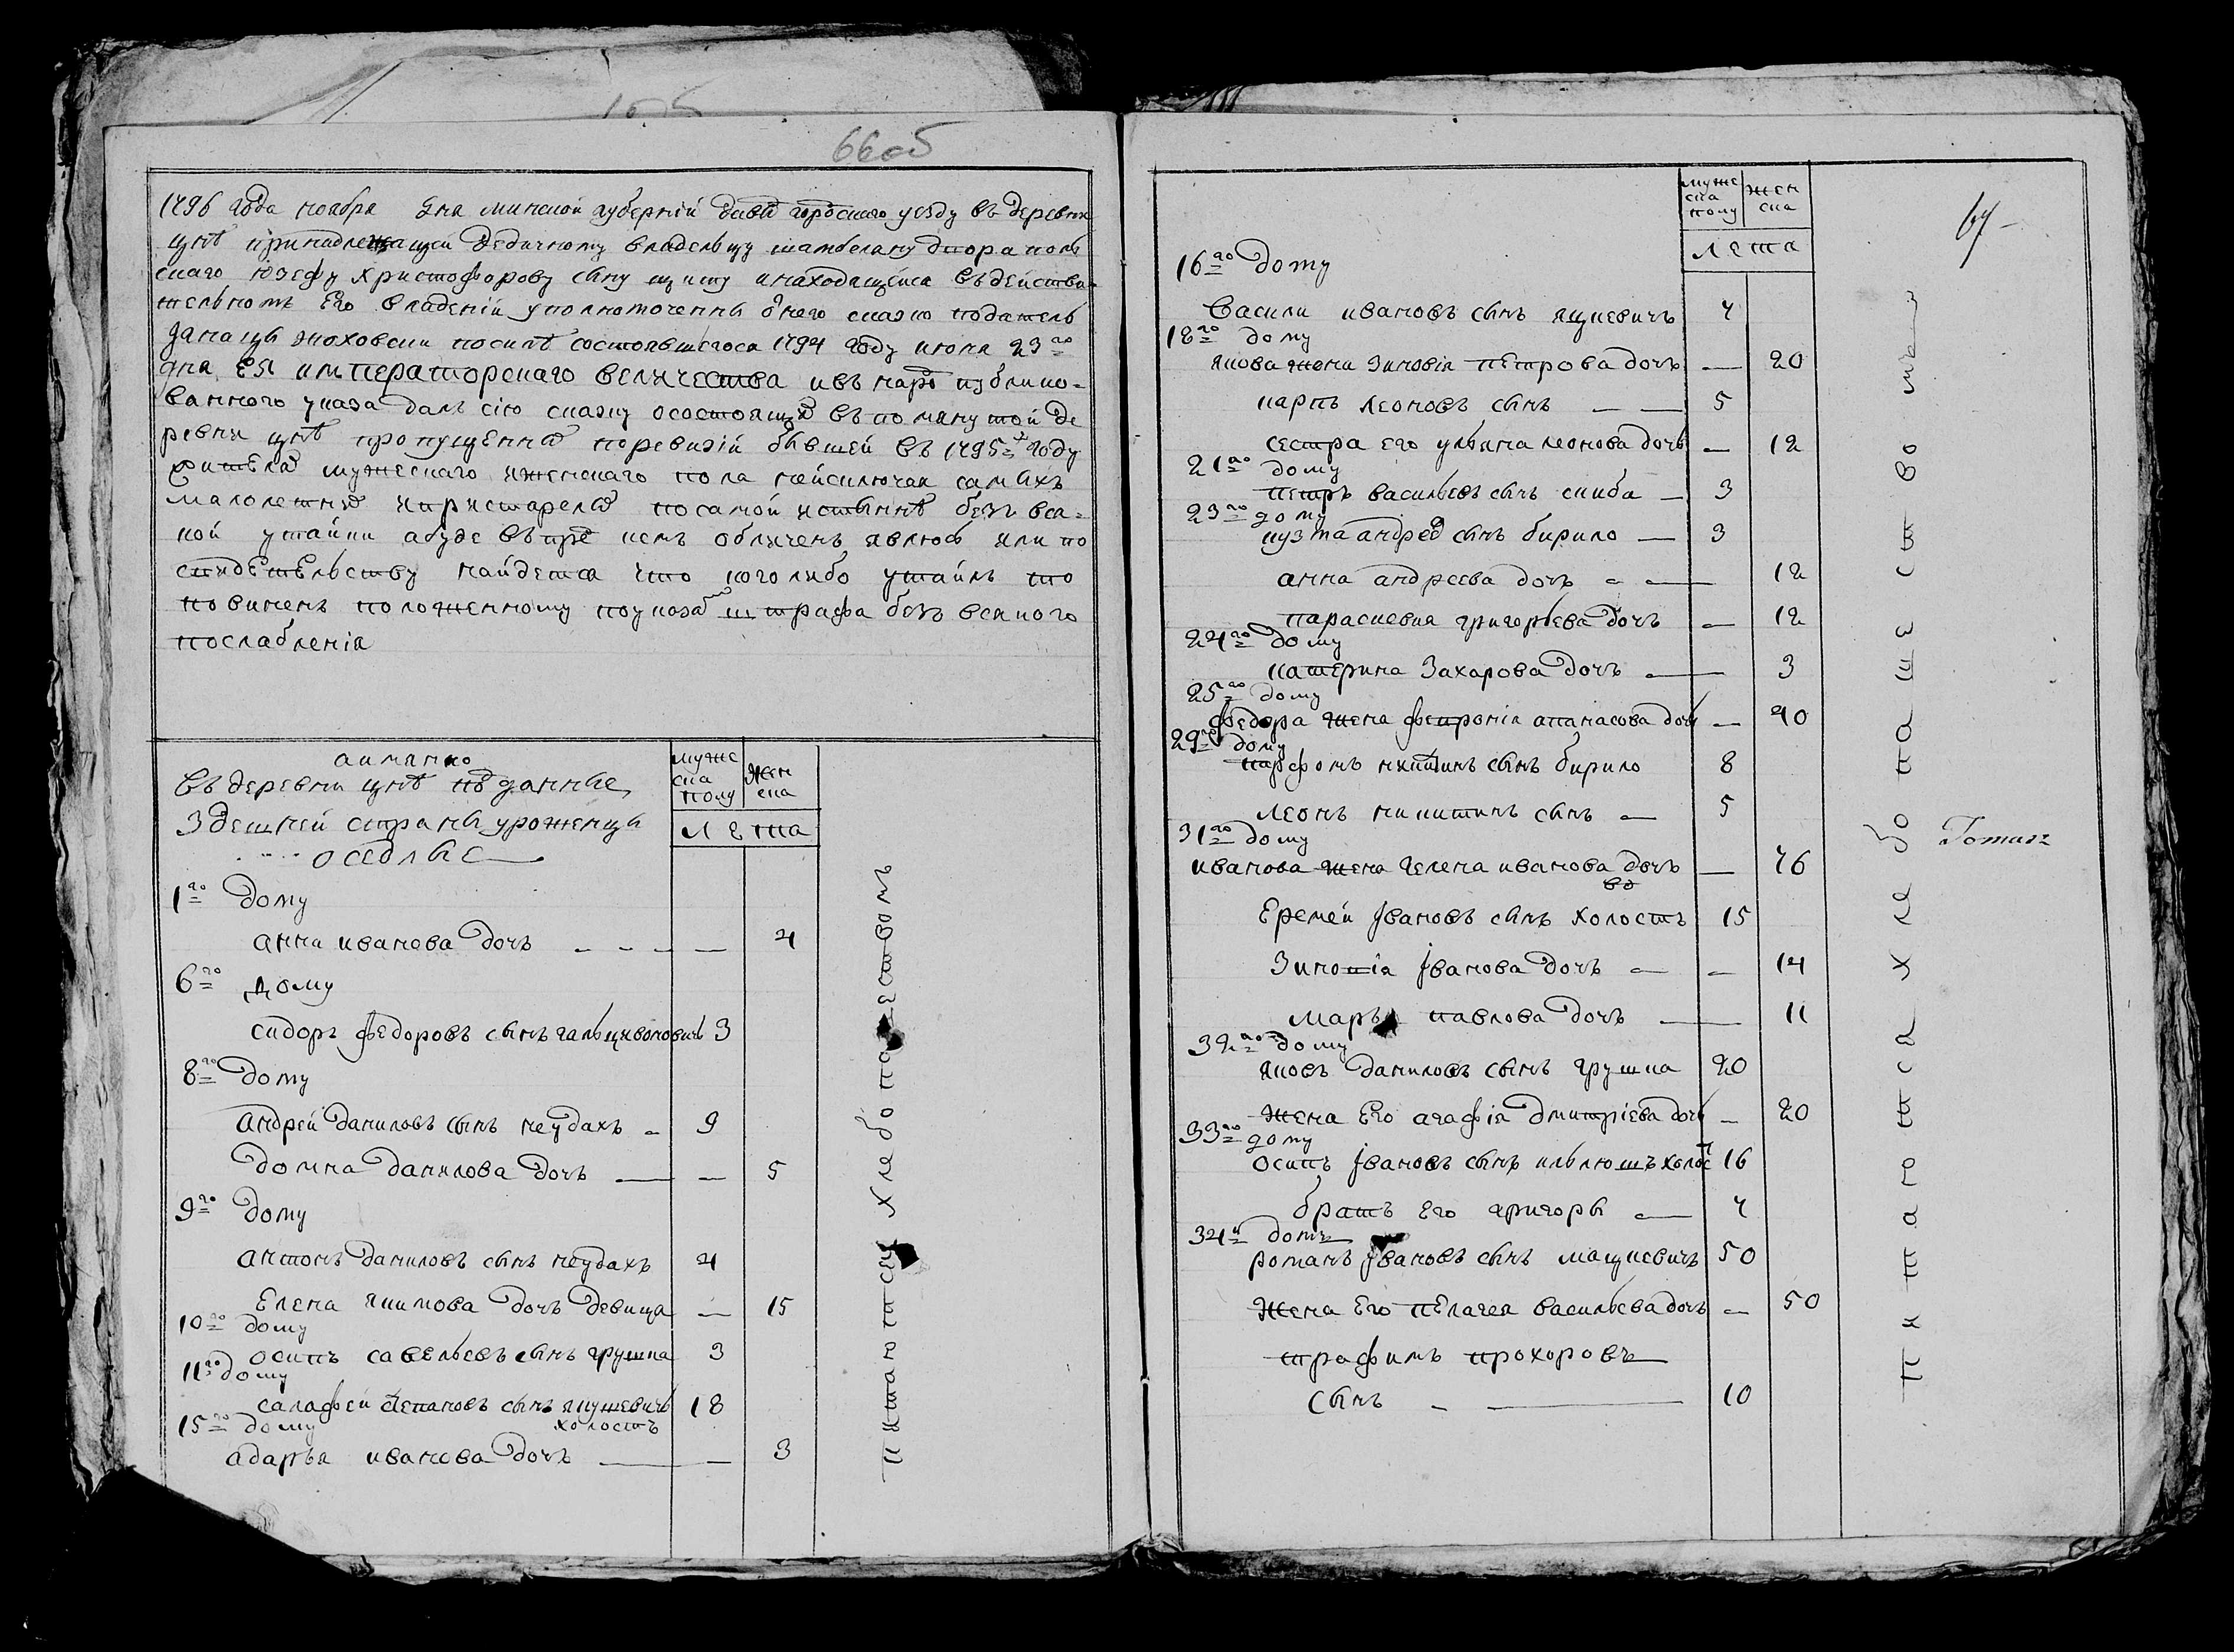 66об
1796 года ноября дня минской губерній давыдгородскаго уезду въ деревни
цнѣ принадлежащей Дедичному владельцу шамбелану двора поль
скаго юзефу христофорову сыну щиту инаходящейса въ действи
тельномъ Его владеній уполномоченны
посилѣ состоявшегося 1794 году июня 23го
дня Ея императорскаго величества ивъ народ публико-
ванного указа далъ сію сказку осостоящих въ помянутой де
ревни цнѣ пропущенных поревизій бывшей въ 1795м году
жителей мужескаго иженскаго пола неисключая самыхъ
малолетних ипристарелых посамой истыннѣ безъ вся-
кой утайки абуде въпред кемъ обличенъ явлюсь или по
свидетельству найдется что коголибо утаилъ то
повиненъ положенному поуказам штрафа безъ всякого
послабленія
аимянно
Въ деревни цнѣ подданные
Здешней страны уроженцы
оседлые
муже
ска
полу
Жен
ска
лета
1го дому
анна иванова дочь 4
6го дому
сидоръ федоровъ сынъ гальцивоновичъ 3
8го дому
андрей даниловъ сынъ неудахъ 9
домна данилова дочь 5
9го дому
антонъ даниловъ сынъ неудахъ 4
Елена якимова дочь девица 15
10го дому
осипъ савельевъ сынъ грушка 3
11го дому
салафей степановъ сынъ якушевичъ 18
холостъ
15го дому
адарья иванова дочь 3
питаютси хлебопашествомъ
67
муже
ска
полу
жен
ска
лета
16го дому
Васили ивановъ сынъ яцкевичъ 7
18го дому
якова жена Зиновія петрова дочь 20
карпъ леоновъ сынъ 5
сестра его ульяна леонова дочь 12
21го дому
петръ васильевъ сынъ скиба 3
23го дому
кузма андреев сынъ бирило 3
анна андреева дочь 12
параскевия григорьева дочь 12
24го дому
катерина Захарова дочь 3
25го дому
федора жена фепронія апанасова дочь 40
29го дому
парфонъ никитинъ сынъ бирило 8
леонъ никитинъ сынъ 5
31го дому
иванова жена гелена иванова дочь 76
вд
Еремей ивановъ сынъ холостъ 15
Зиновія иванова дочь 14
марья павлова дочь 11
32го дому
яковъ даниловъ сынъ грушка 20
жена Его агафія дмитріева дочь 20
33го дому
осипъ ивановъ сынъ ильюшъ холост 16
братъ его григоры 7
34й домъ
романъ ивановъ сынъ мацкевичъ 50
жена Его пелагея васильева дочь 50
трафимъ прохоровъ
сынъ 10
питаютса хлебопашествомъ
Tomasz